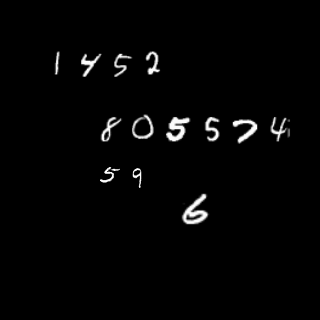 1452
805574
59
6